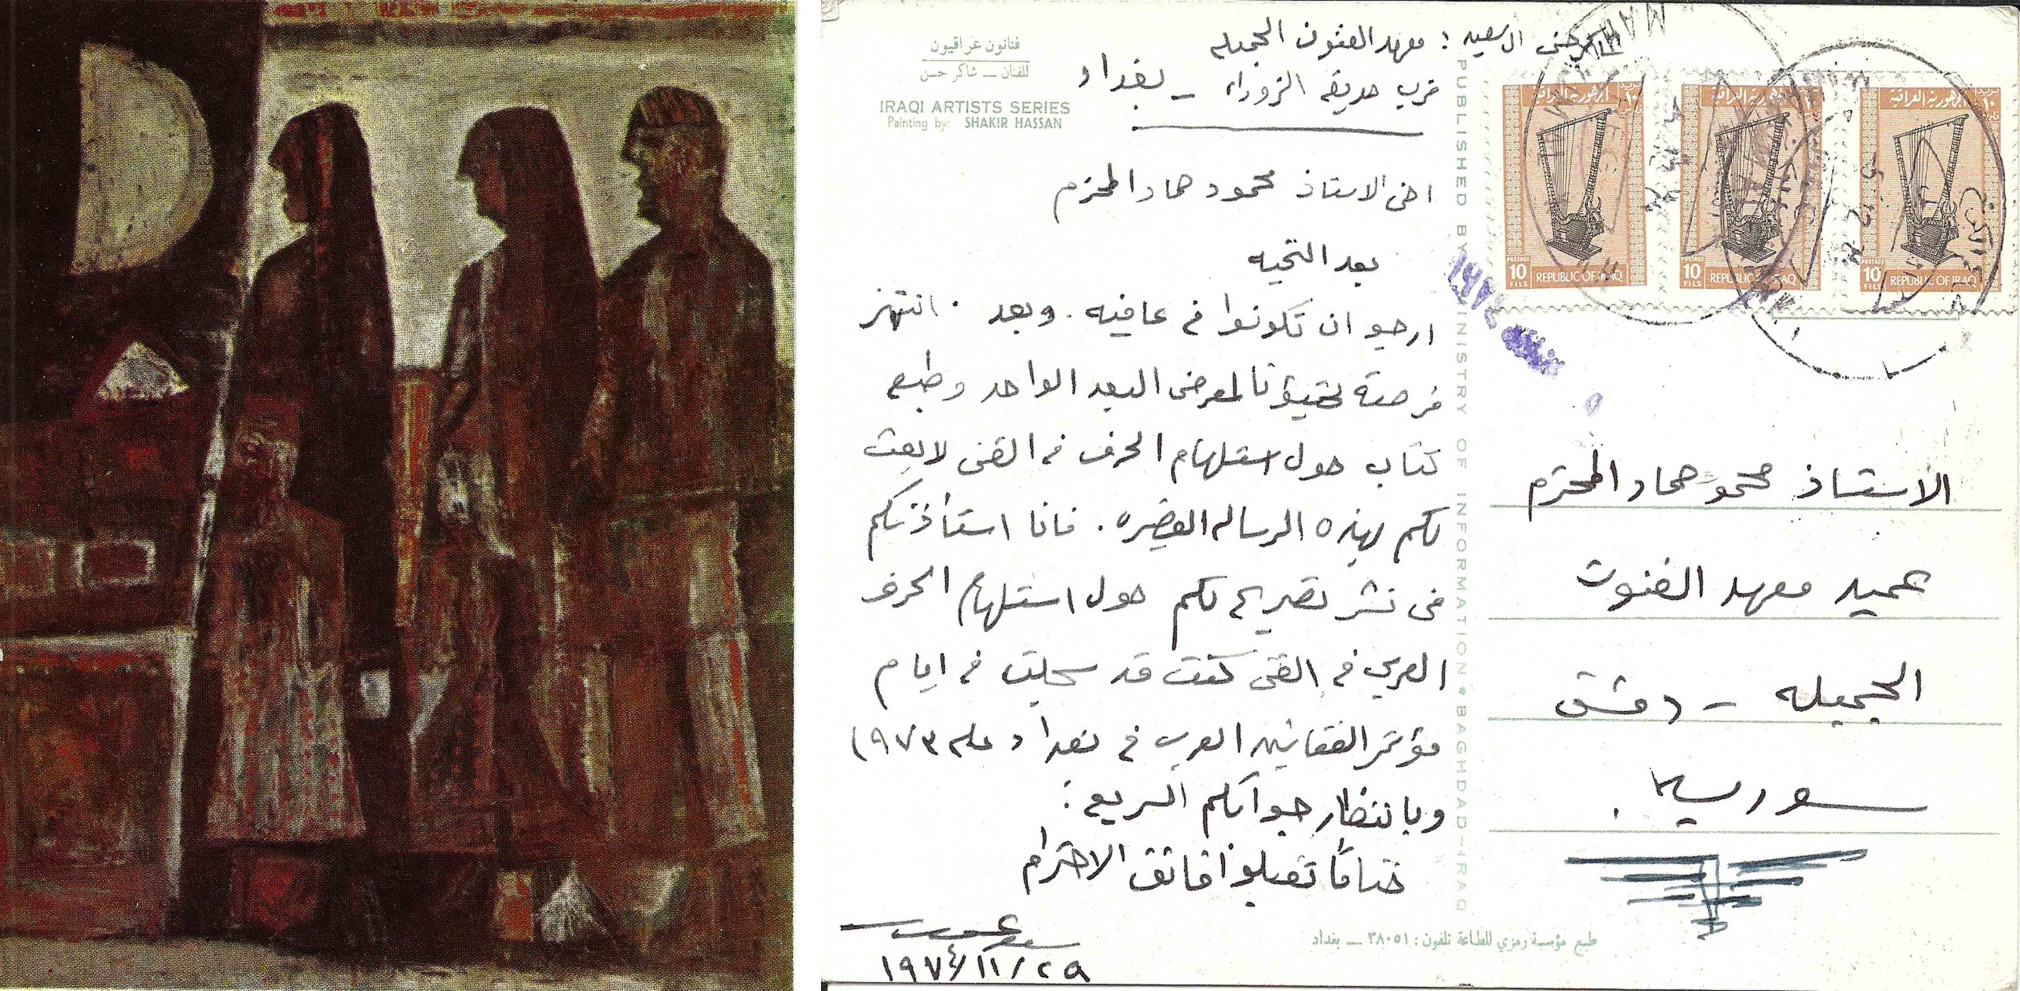 فنانون عراقيون
للفنان — شاكر حسن
IRAQI ARTISTS SERIES
Painting by: SHAKIR HASSAN
: معهد الفنون الجميله
قرب حديقه الزوراء - بغداد
اخي الاستاذ محمود حماد المحترم
بعد التحيه
ارجو ان تكونوا في عافيه . وبعد . انتهز
فرصة لمعرض البعد الواحد وطبع
كتاب حول استلهام الحرف في الفن لابعث
لكم بهذه الرساله القصيره . فانا استأذنكم
في نشر تصريح لكم حول استلهام الحرف
العربي في الفن كنت قد سجلته في ايام
مؤتمر الفنانين العرب في بغداد عام ١٩٧٣
وبانتظار جوابكم السريع :
ختاماً تقبلوا فائق الاحترام
١٩٧٤/١١/٢٩
PUBLISHED BY MINISTRY OF INFORMATION • BAGHDAD-IRAQ
الجمهورية العراقية
١٠
POSTAGE
10 FILS
REPUBLIC OF IRAQ
الجمهورية العراقية
١٠
POSTAGE
10 FILS
REPUBLIC OF IRAQ
الجمهورية العراقية
١٠
POSTAGE
10 FILS
REPUBLIC OF IRAQ
الاستاذ محمود حماد المحترم
عميد معهد الفنون
الجميله - دمشق
سوريا .
طبع مؤسسة رمزي للطباعة تلفون : ٣٨٠٥١ — بغداد